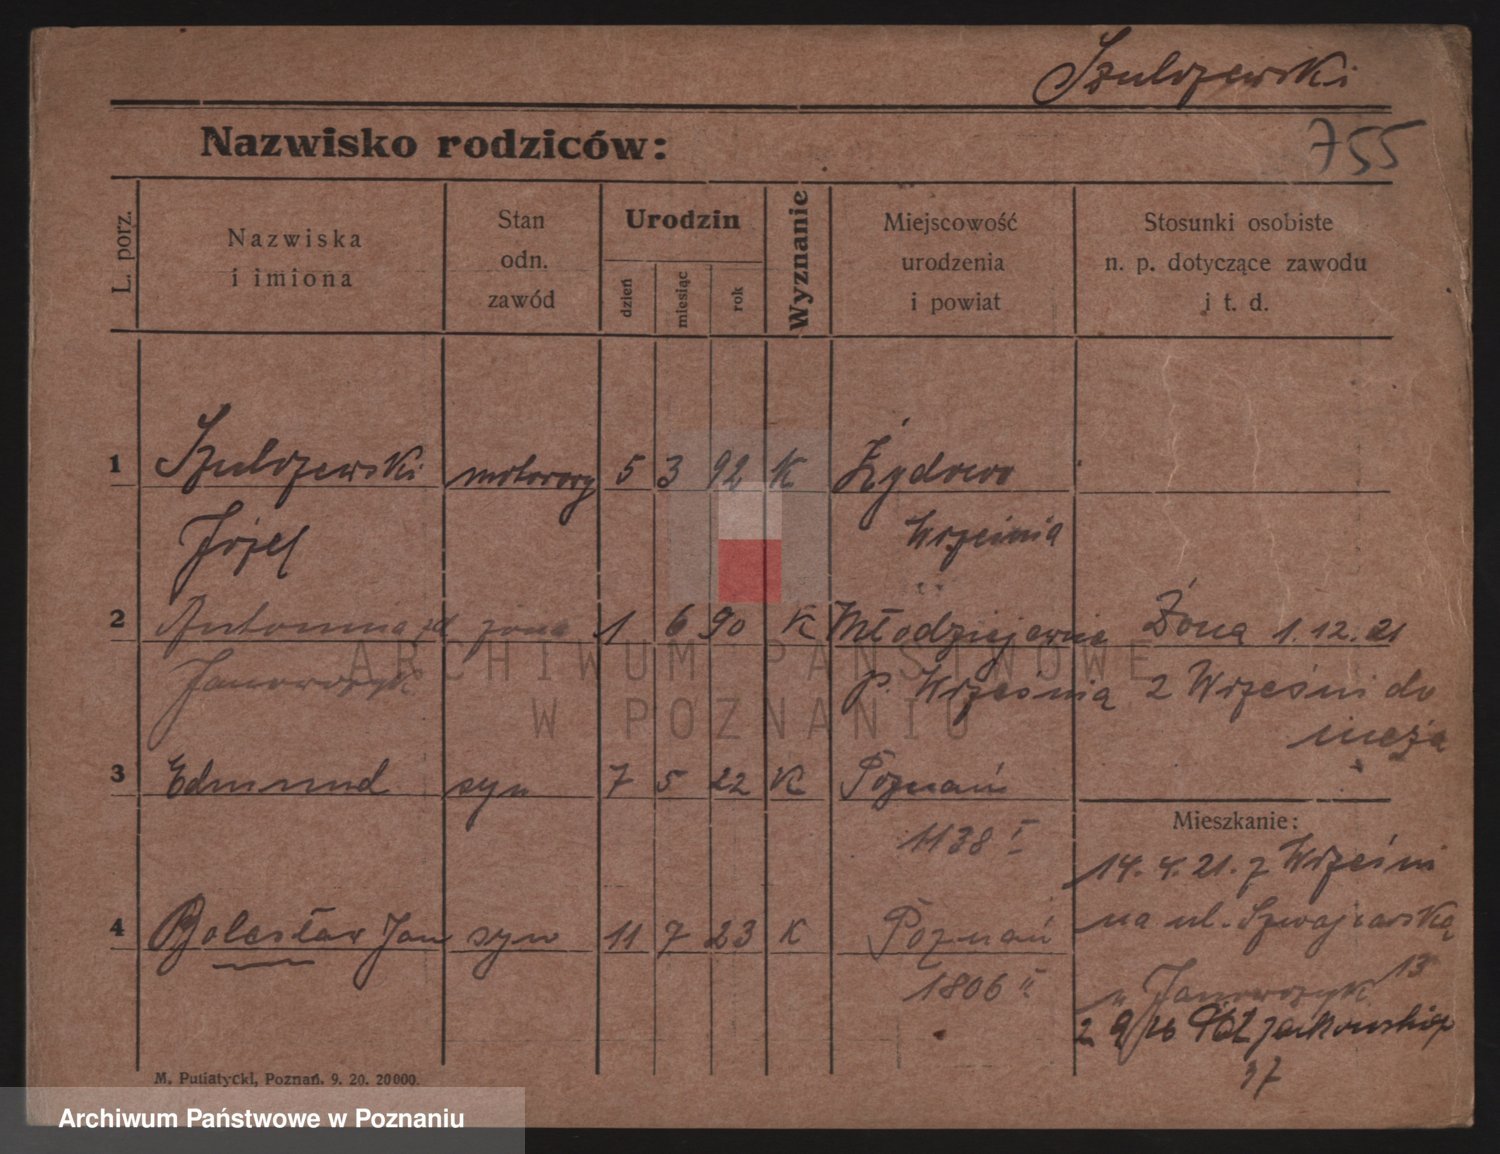 Szulczewski
Nazwisko rodziców:
755
L. porz.
Nazwiska
i imiona
Stan
odn.
zawód
Urodzin
dzień
miesiąc
rok
Wyznanie
Miejscowość
urodzenia
i powiat
Stosunki osobiste
n. p. dotyczące zawodu
i t. d.
1 Szulczewski motorowy 5 3 92 K Żydowo
Józef Września
2 Antonina zd żona 1 6 90 K Młodziejewice Żona 1.12.21
Janowczyk p. Września z Wrześni do
męża
3 Edmund syn 7 5 22 K Poznań
Mieszkanie:
1138 I
14.4.21. z Wrześni
4 Bolesław Jan syn 11 7 23 K Poznań
na ul. Szwajcarską
13
1806 II
u Janowczyk
2 9/26
37
M. Putiatycki, Poznań. 9. 20. 20000.
ARCHIWUM PAŃSTWOWE
W POZNANIU
Archiwum Państwowe w Poznaniu